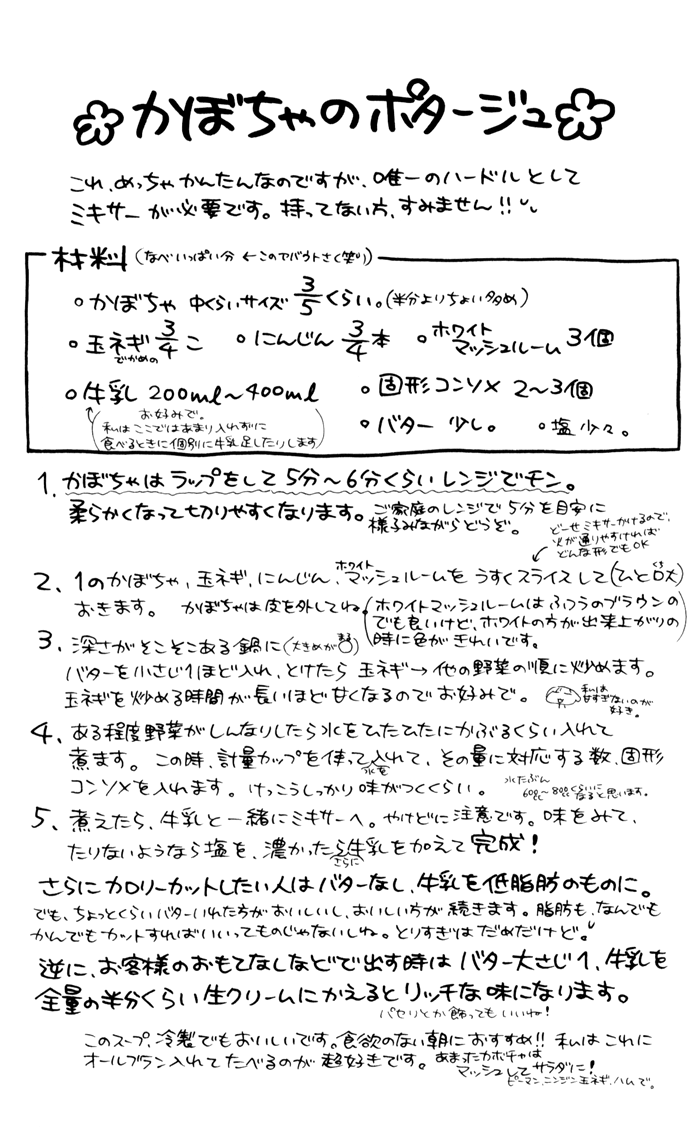 かぼちゃのポタージュ
これ、めっちゃかんたんなのですが、唯一のハードルとして
ミキサーが必要です。持ってない方、すみません!!
材料(なべいっぱい分 ←このアバウトさ(笑))
○かぼちゃ 中くらいサイズ 3/5くらい。(半分よりちょい多め)
○玉ネギ 3/4こ ○にんじん 3/4本 ○ホワイトマッシュルーム 3個
でかめの
○牛乳 200ml〜400ml ○固形コンソメ 2〜3個
お好みで。
私はここではあまり入れずに
食べるときに個別に牛乳足したりします
○バター 少し。 ○塩少々。
1. かぼちゃはラップをして5分〜6分くらいレンジでチン。
柔らかくなって切りやすくなります。ご家庭のレンジで5分を目安に
様子みながらどうぞ。
どーせミキサーかけるので、
火が通りやすければ
どんな形でもOK
2. 1のかぼちゃ、玉ネギ、にんじん、ホワイトマッシュルームをうすくスライスして(ひと口大)
おきます。 かぼちゃは皮を外してね。
(ホワイトマッシュルームはふつうのブラウンの
でも良いけど、ホワイトの方が出来上がりの
時に色がきれいです。)
3. 深さがそこそこある鍋に(大きめが)
バターを小さじ1ほど入れ、とけたら玉ネギ→他の野菜の順に炒めます。
玉ネギを炒める時間が長いほど甘くなるのでお好みで。
私は
甘すぎないのが
好き。
4. ある程度野菜がしんなりしたら水をひたひたにかぶるくらい入れて
煮ます。この時、計量カップを使って水を入れて、その量に対応する数、固形
コンソメを入れます。けっこうしっかり味がつくくらい。
水たぶん
600cc〜800ccくらいに
なると思います。
5. 煮えたら、牛乳と一緒にミキサーへ。やけどに注意です。味をみて、
たりないようなら塩を、濃かったらさらに牛乳を加えて完成!
さらにカロリーカットしたい人はバターなし、牛乳を低脂肪のものに。
でも、ちょっとくらいバターいれた方がおいしいし、おいしい方が続きます。脂肪も、なんでも
かんでもカットすればいいってものじゃないしね。とりすぎはだめだけど。
逆に、お客様のおもてなしなどで出す時はバター大さじ1、牛乳を
全量の半分くらい生クリームにかえるとリッチな味になります。
パセリとか飾ってもいいね!
このスープ、冷製でもおいしいです。食欲のない朝におすすめ!!私はこれに
オールブラン入れてたべるのが超好きです。
あまったカボチャは
マッシュしてサラダに!
ピーマン、ニンジン、玉ネギ、ハムで。